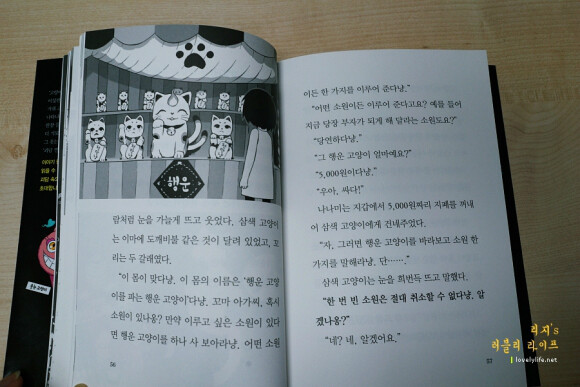 행운
람처럼 눈을 가늘게 뜨고 웃었다. 삼색 고양이
는 이마에 도깨비불 같은 것이 달려 있었고, 꼬
리는 두 갈래였다.
“이 몸이 맞다냥. 이 몸의 이름은 ‘행운 고양
이를 파는 행운 고양이’다냥. 꼬마 아가씨, 혹시
소원이 있나옹? 만약 이루고 싶은 소원이 있다
면 행운 고양이를 하나 사 보아라냥. 어떤 소원
56
이든 한 가지를 이루어 준다냥.”
“어떤 소원이든 이루어 준다고요? 예를 들어
지금 당장 부자가 되게 해 달라는 소원도요?”
“당연하다냥.”
“그 행운 고양이 얼마예요?”
“5,000원이다냥.”
“우아, 싸다!”
나나미는 지갑에서 5,000원짜리 지폐를 꺼내
어 삼색 고양이에게 건네주었다.
“자, 그러면 행운 고양이를 바라보고 소원 한
가지를 말해라냥. 단…….”
삼색 고양이는 눈을 희번득 뜨고 말했다.
“한 번 빈 소원은 절대 취소할 수 없다냥. 알
겠나옹?”
“네? 네, 알겠어요.”
57
리지's
러블리 라이프
lovelylife.net